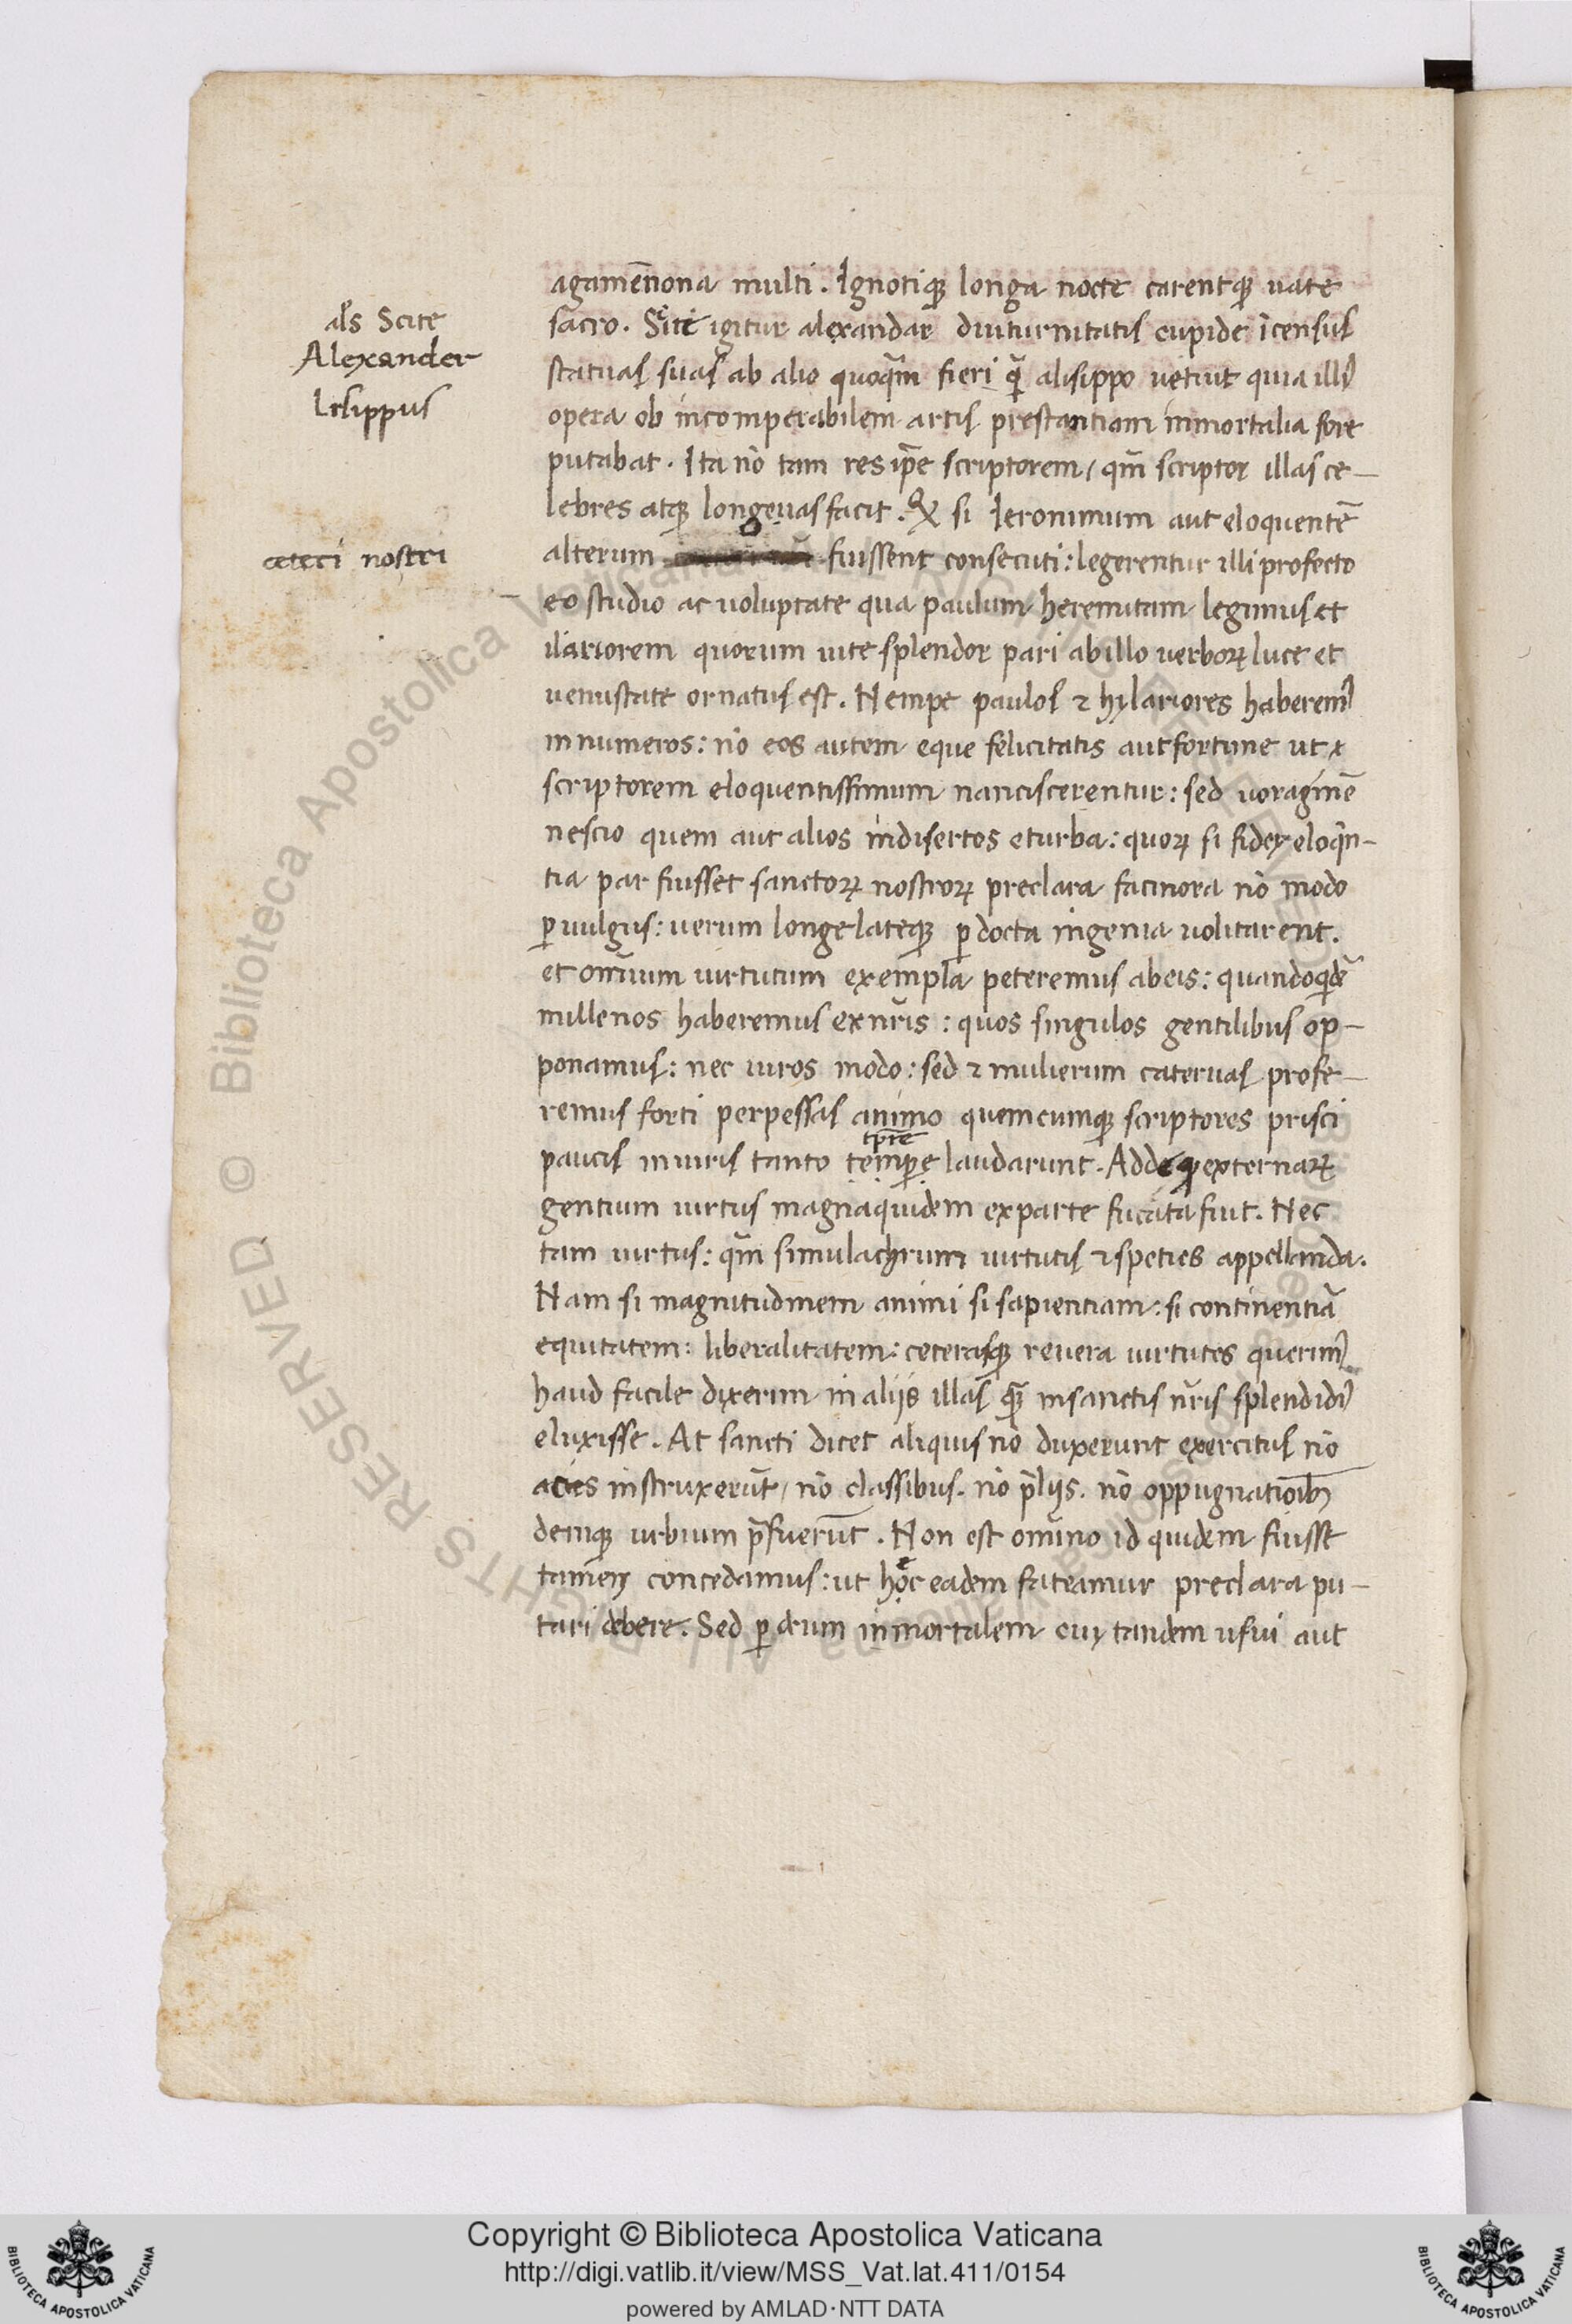 agamēnona multi. Ignotiqꝫ longa nocte carentqꝫ uate
als Scite
Alexander
Lisippus
sacro. Sitē igitur alexandar diuturnitatis cupide īcensus
statuas suas ab alio quoq̄m fieri q̄ alisippo uetuit quia illiꝰ
opera ob incomperabilem artis prestantiam inmortalia fore
putabat. Ita nō tam res ip̄e scriptorem / qm̄ scriptor illas ce-
lebres atqꝫ longeuas facit. Qꝫ si Ieronimum aut eloquentē
ceteri nostri
alterum fuissent consecuti: legerentur illi profecto
eo studio ac uoluptate qua paulum heremitam legimus et
ilariorem quorum uite splendor pari abillo uerborꝝ luce et
uenustate ornatus est. Nempe paulos ⁊ hylariores haberemꝰ
innumeros: nō eos autem eque felicitatis aut fortune ut ⁊
scriptorem eloquentissimum nanciscerentur: sed uoraginē
nescio quem aut alios indisertos eturba: quorꝝ si fidei eloq̄n-
tia par fuisset sanctorꝝ nostrorꝝ preclara facinora nō modo
ꝑ uulgus: uerum longe lateqꝫ ꝑ docta ingenia uolitarent.
et omīum uirtutum exempla peteremus abeis: quandoqdē
millenos haberemus exnr̄is: quos singulos gentilibus op-
ponamus: nec uiros modo: sed ⁊ mulierum cateruas profe-
remus forti perpessas animo quemcumqꝫ scriptores prisci
tp̄re
paucis inuiris tanto tempꝑe laudarunt. Adde ꝙ externarꝝ
gentium uirtus magnaquidem exparte fucata fuit. Nec
tam uirtus: qm̄ simulachrum uirtutis ⁊ speties appellanda.
Nam si magnitudinem animi si sapientiam: si continentiā
equitatem: liberalitatem: ceterasqꝫ reuera uirtutes querimꝰ
haud facile dixerim in aliis illas qꝫ insanctis nr̄is splendidiꝰ
eluxisse. At sancti dicet aliquis nō duxerunt exercitus nō
acies instruxerūt / nō classibus. nō p̄liis. nō oppugnatiōibꝫ
demqꝫ urbium p̄fuerūt. Non est omīno id quidem fuisse
tamen concedamus: ut hoc eadem fateamur preclara pu-
tari debere. Sed ꝑ deum inmortalem cui tandem usui aut
Copyright © Biblioteca Apostolica Vaticana
http://digi.vatlib.it/view/MSS_Vat.lat.411/0154
powered by AMLAD·NTT DATA